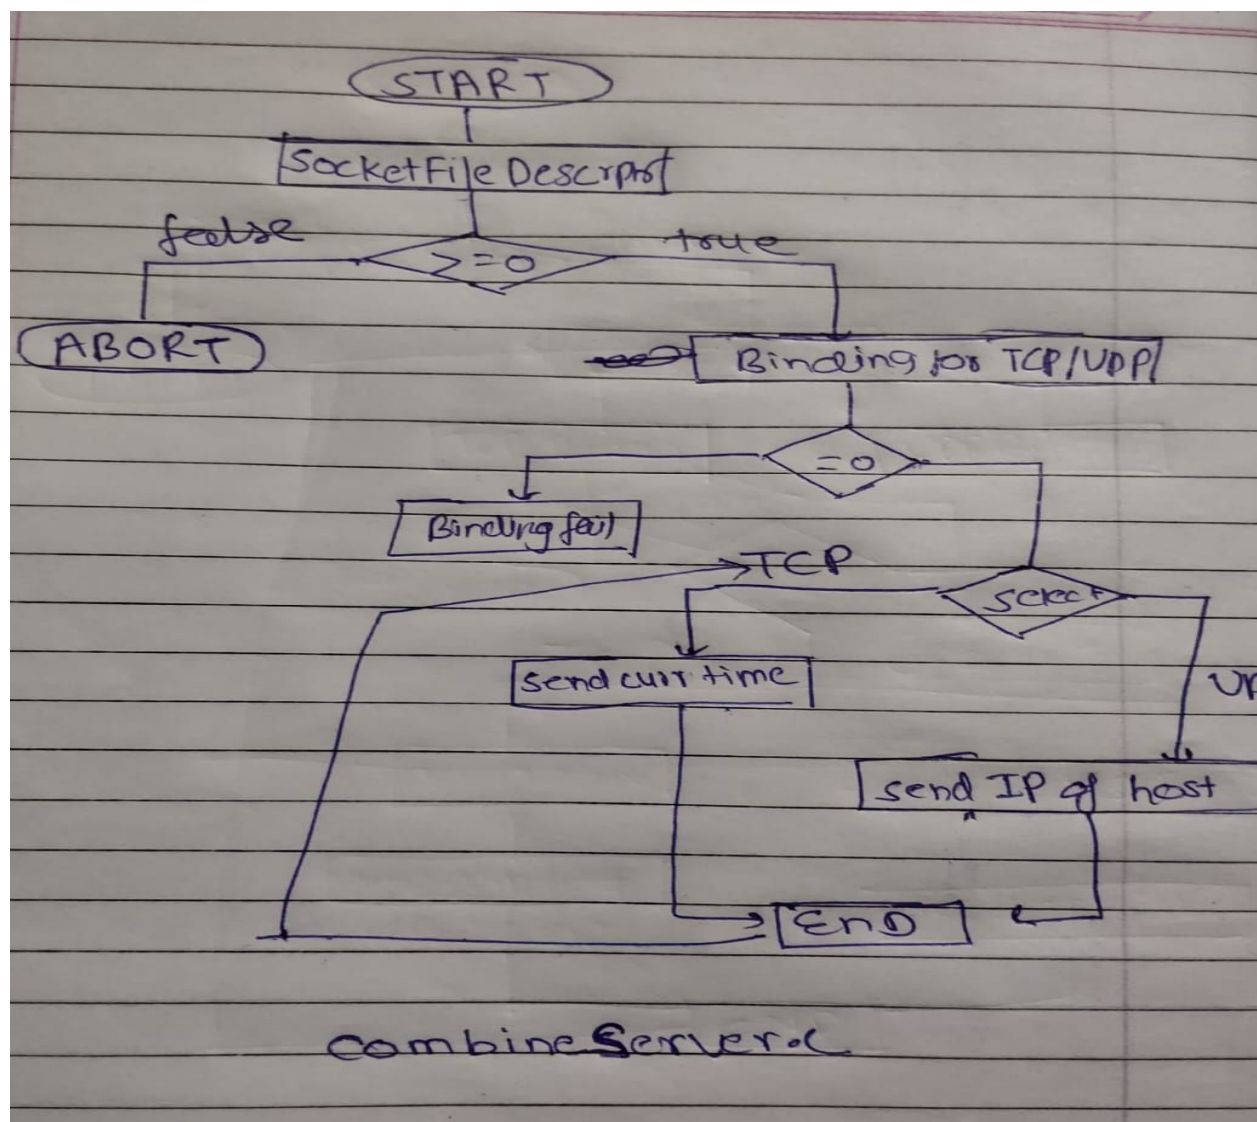 START
Socket File Descrptor
false
>=0
true
ABORT
Binding for TCP/UDP
=0
Binding fail
TCP
select
send curr time
UD
send IP of host
EnD
combineServer.c